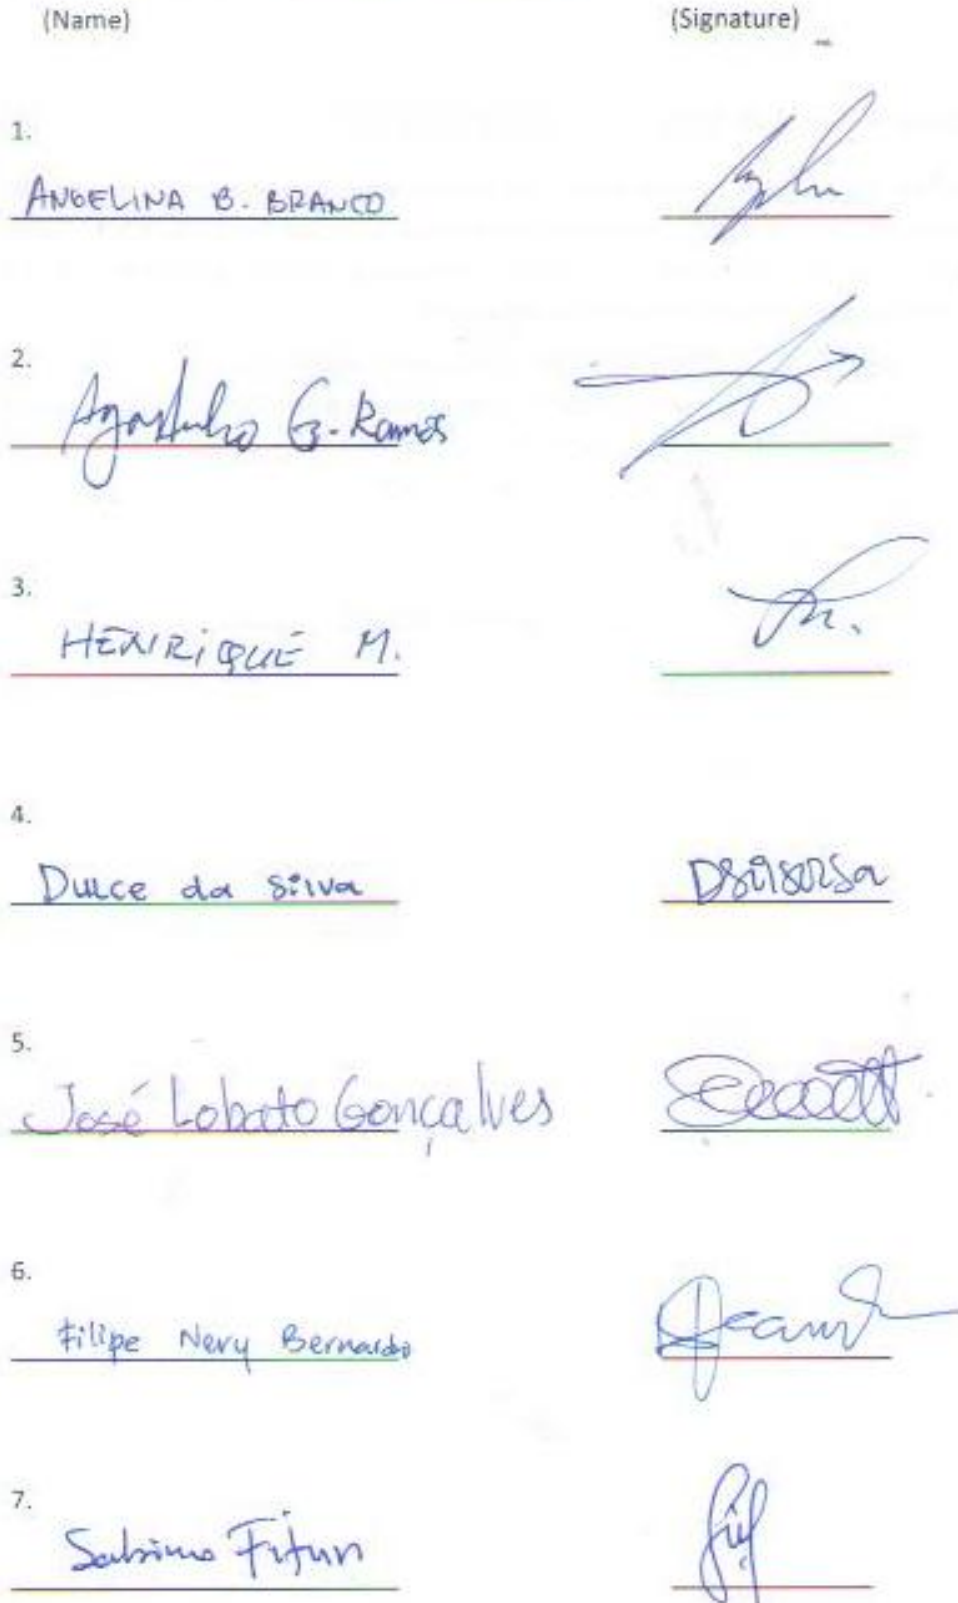 (Name) (Signature)
1.
ANGELINA B. BRANCO
2.
Agostinho G. Ramos
3.
HENRIQUE M.
4.
Dulce da Silva
5.
José Lobato Gonçalves
6.
Filipe Nery Bernardo
7.
Sabino Fitun